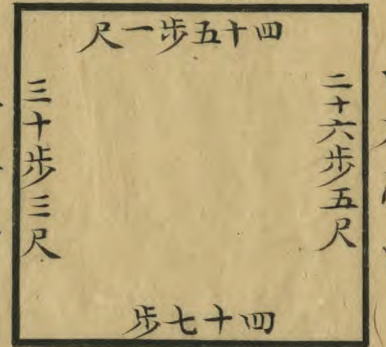 四十五步一尺
二十六步五尺
三十步三尺
四十七步